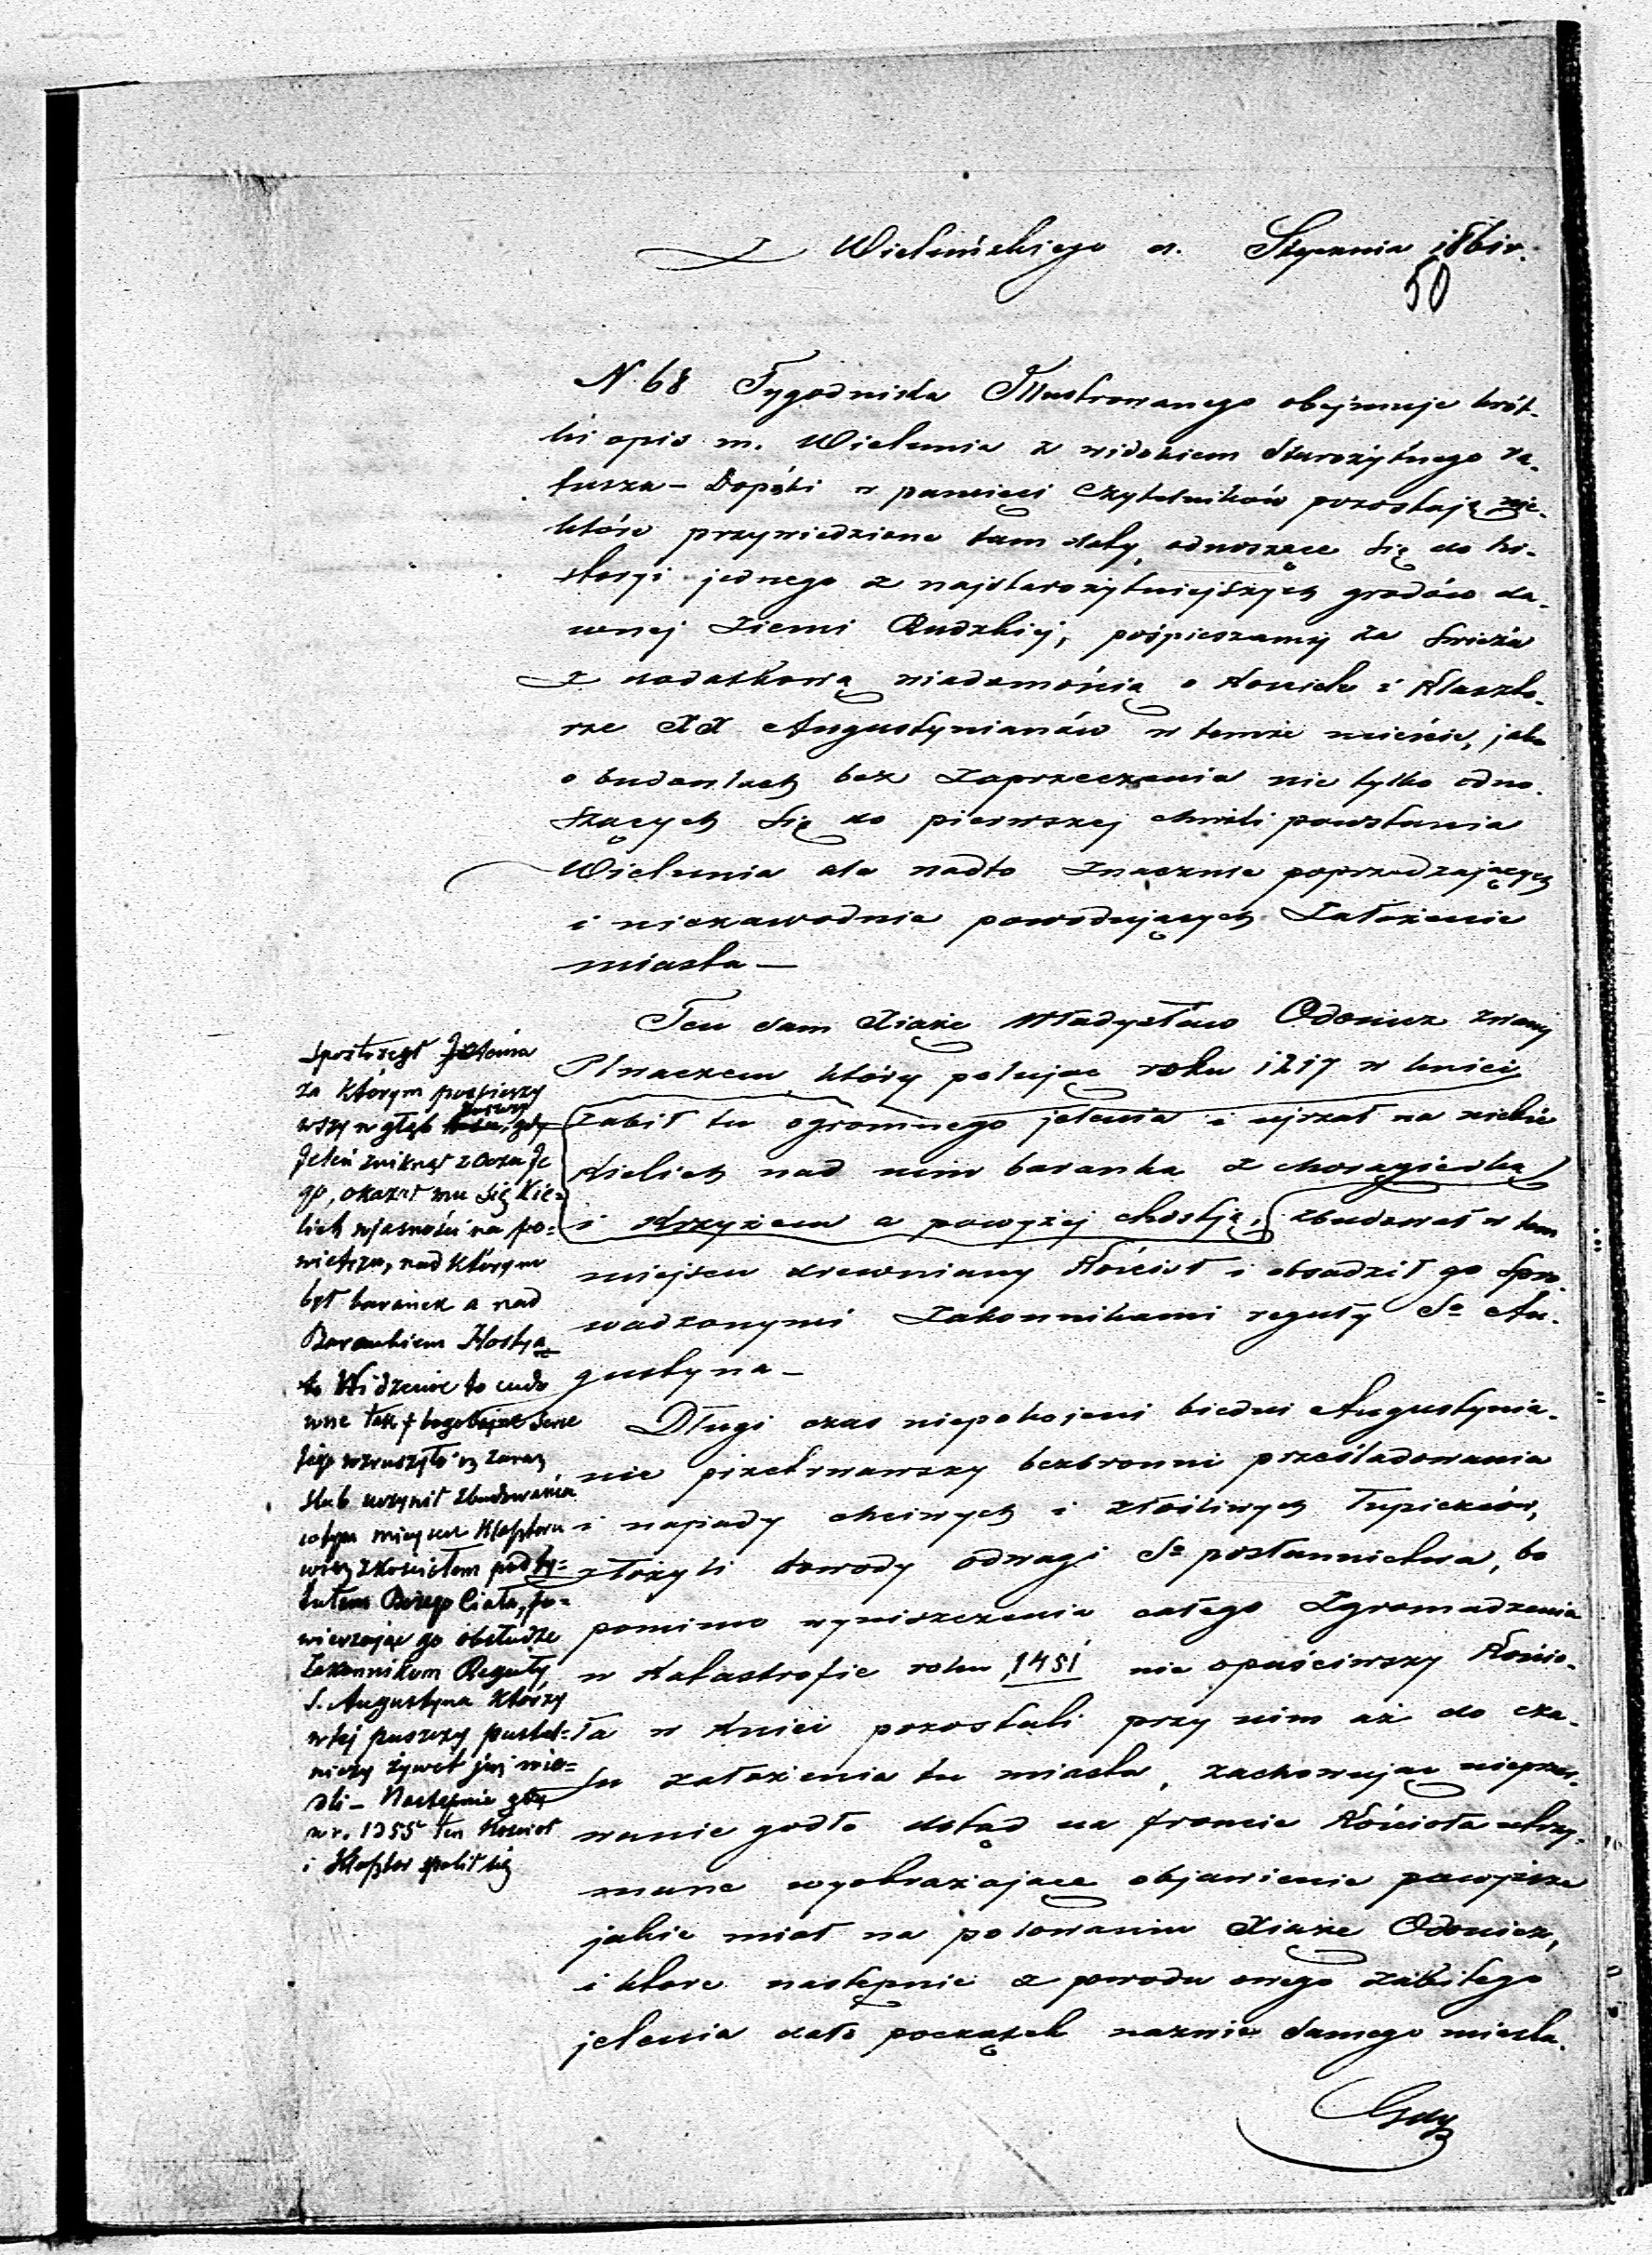 z Wieluńskiego d. Stycznia 1861 r.
50
N. 68 Tygodnika Illustrowanego obejmuje krót-
ki opis m. Wielunia z widokiem starożytnego ra-
tusza — Dopóki w pamięci czytelników pozostają nie-
które przywiedzione tam daty, odnoszące się do hi-
storyi jednego z najstarożytniejszych grodów da-
wnej Ziemi Rudzkiej, pośpieszamy za świeża
z dodatkową wiadomością o kościele i klaszto-
rze XX Augustynianów w temże mieście, jako
o budowlach bez zaprzeczenia nie tylko odno-
szących się do pierwszej chwili powstania
Wielunia ale nadto znacznie poprzedzających
i niezawodnie powodujących założenie
miasta —
Ten sam Xiąże Władysław Odonicz zwany
Plwaczem, który polując roku 1217 w kniei
zabił tu ogromnego jelenia i ujrzał na niebie
kielich nad nim baranka z chorągiewką
i krzyżem a powyżej hostją, zbudował w tem
miejscu drewniany kościoł i obsadził go spro-
wadzonymi zakonnikami reguły Sº Au-
gustyna —
Długi czas niepokojeni biedni Augustynia-
nie przetrwawszy bezbronni prześladowania
i napady chciwych i złośliwych łupieżców,
złożyli dowody odwagi Sº posłannictwa, bo
pomimo wyniszczenia całego Zgromadzenia
w katastrofie roku 1451 nie opuściwszy kościo-
ła w kniei pozostali przy nim aż do cza-
su założenia tu miasta, zachowując nieprzer-
wanie godło dotąd na froncie kościoła utrzy-
mane wyobrażające objawienie powyższe
jakie miał na polowaniu Xiąże Odonicz,
i które następnie z powodu onego zabitego
jelenia dało początek nazwie samego miasta.
Gdy
Spostrzegł Jelenia
za którym pośpieszy
wszy w głąb puszczy, gdy
Jeleń zniknął z oczu Je
go, okazał mu się Kie-
lich w jasności na po-
wietrzu, nad którym
był baranek a nad
Barankiem Hostya
to Widzenie to cudo
wne tak bogobojne serce
jego wzruszyło iż zaraz
ślub uczynił zbudowania
w tym miejscu Klasztoru
wraz z kościołem pod ty-
tułem Bożego Ciała, po-
wierzając go obsłudze
Zakonnikom Reguły
S. Augustyna którzy
w tej puszczy pustel-
niczy żywot już wie-
dli — Następnie gdy
w r. 1355 ten Kościoł
i Klasztor spalił się